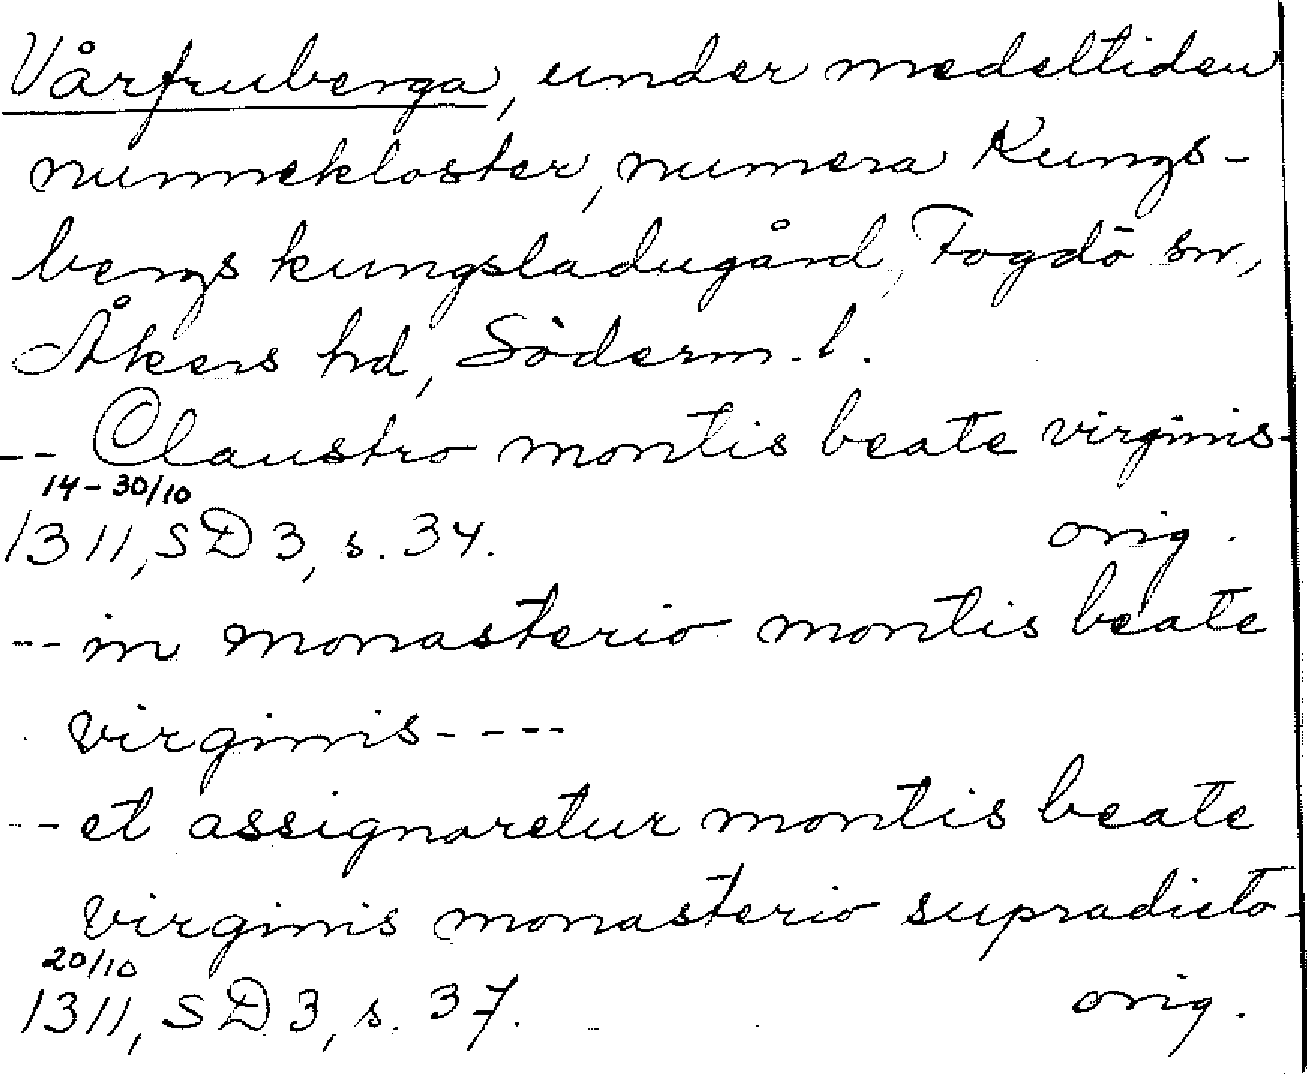 Vårfruberga, under medeltiden
nunnekloster, numera Kungs-
bergs kungsladugård, Fogdö sn,
Åkers hd, Söderm. l.
-- Claustro montis beate virginis-
14-30/10
1311, SD 3, s. 34. orig.
-- in monasterio montis beate
virginis----
-- et assignaretur montis beate
virginis monasterio supradicto-
20/10
1311, SD 3, s. 37. orig.